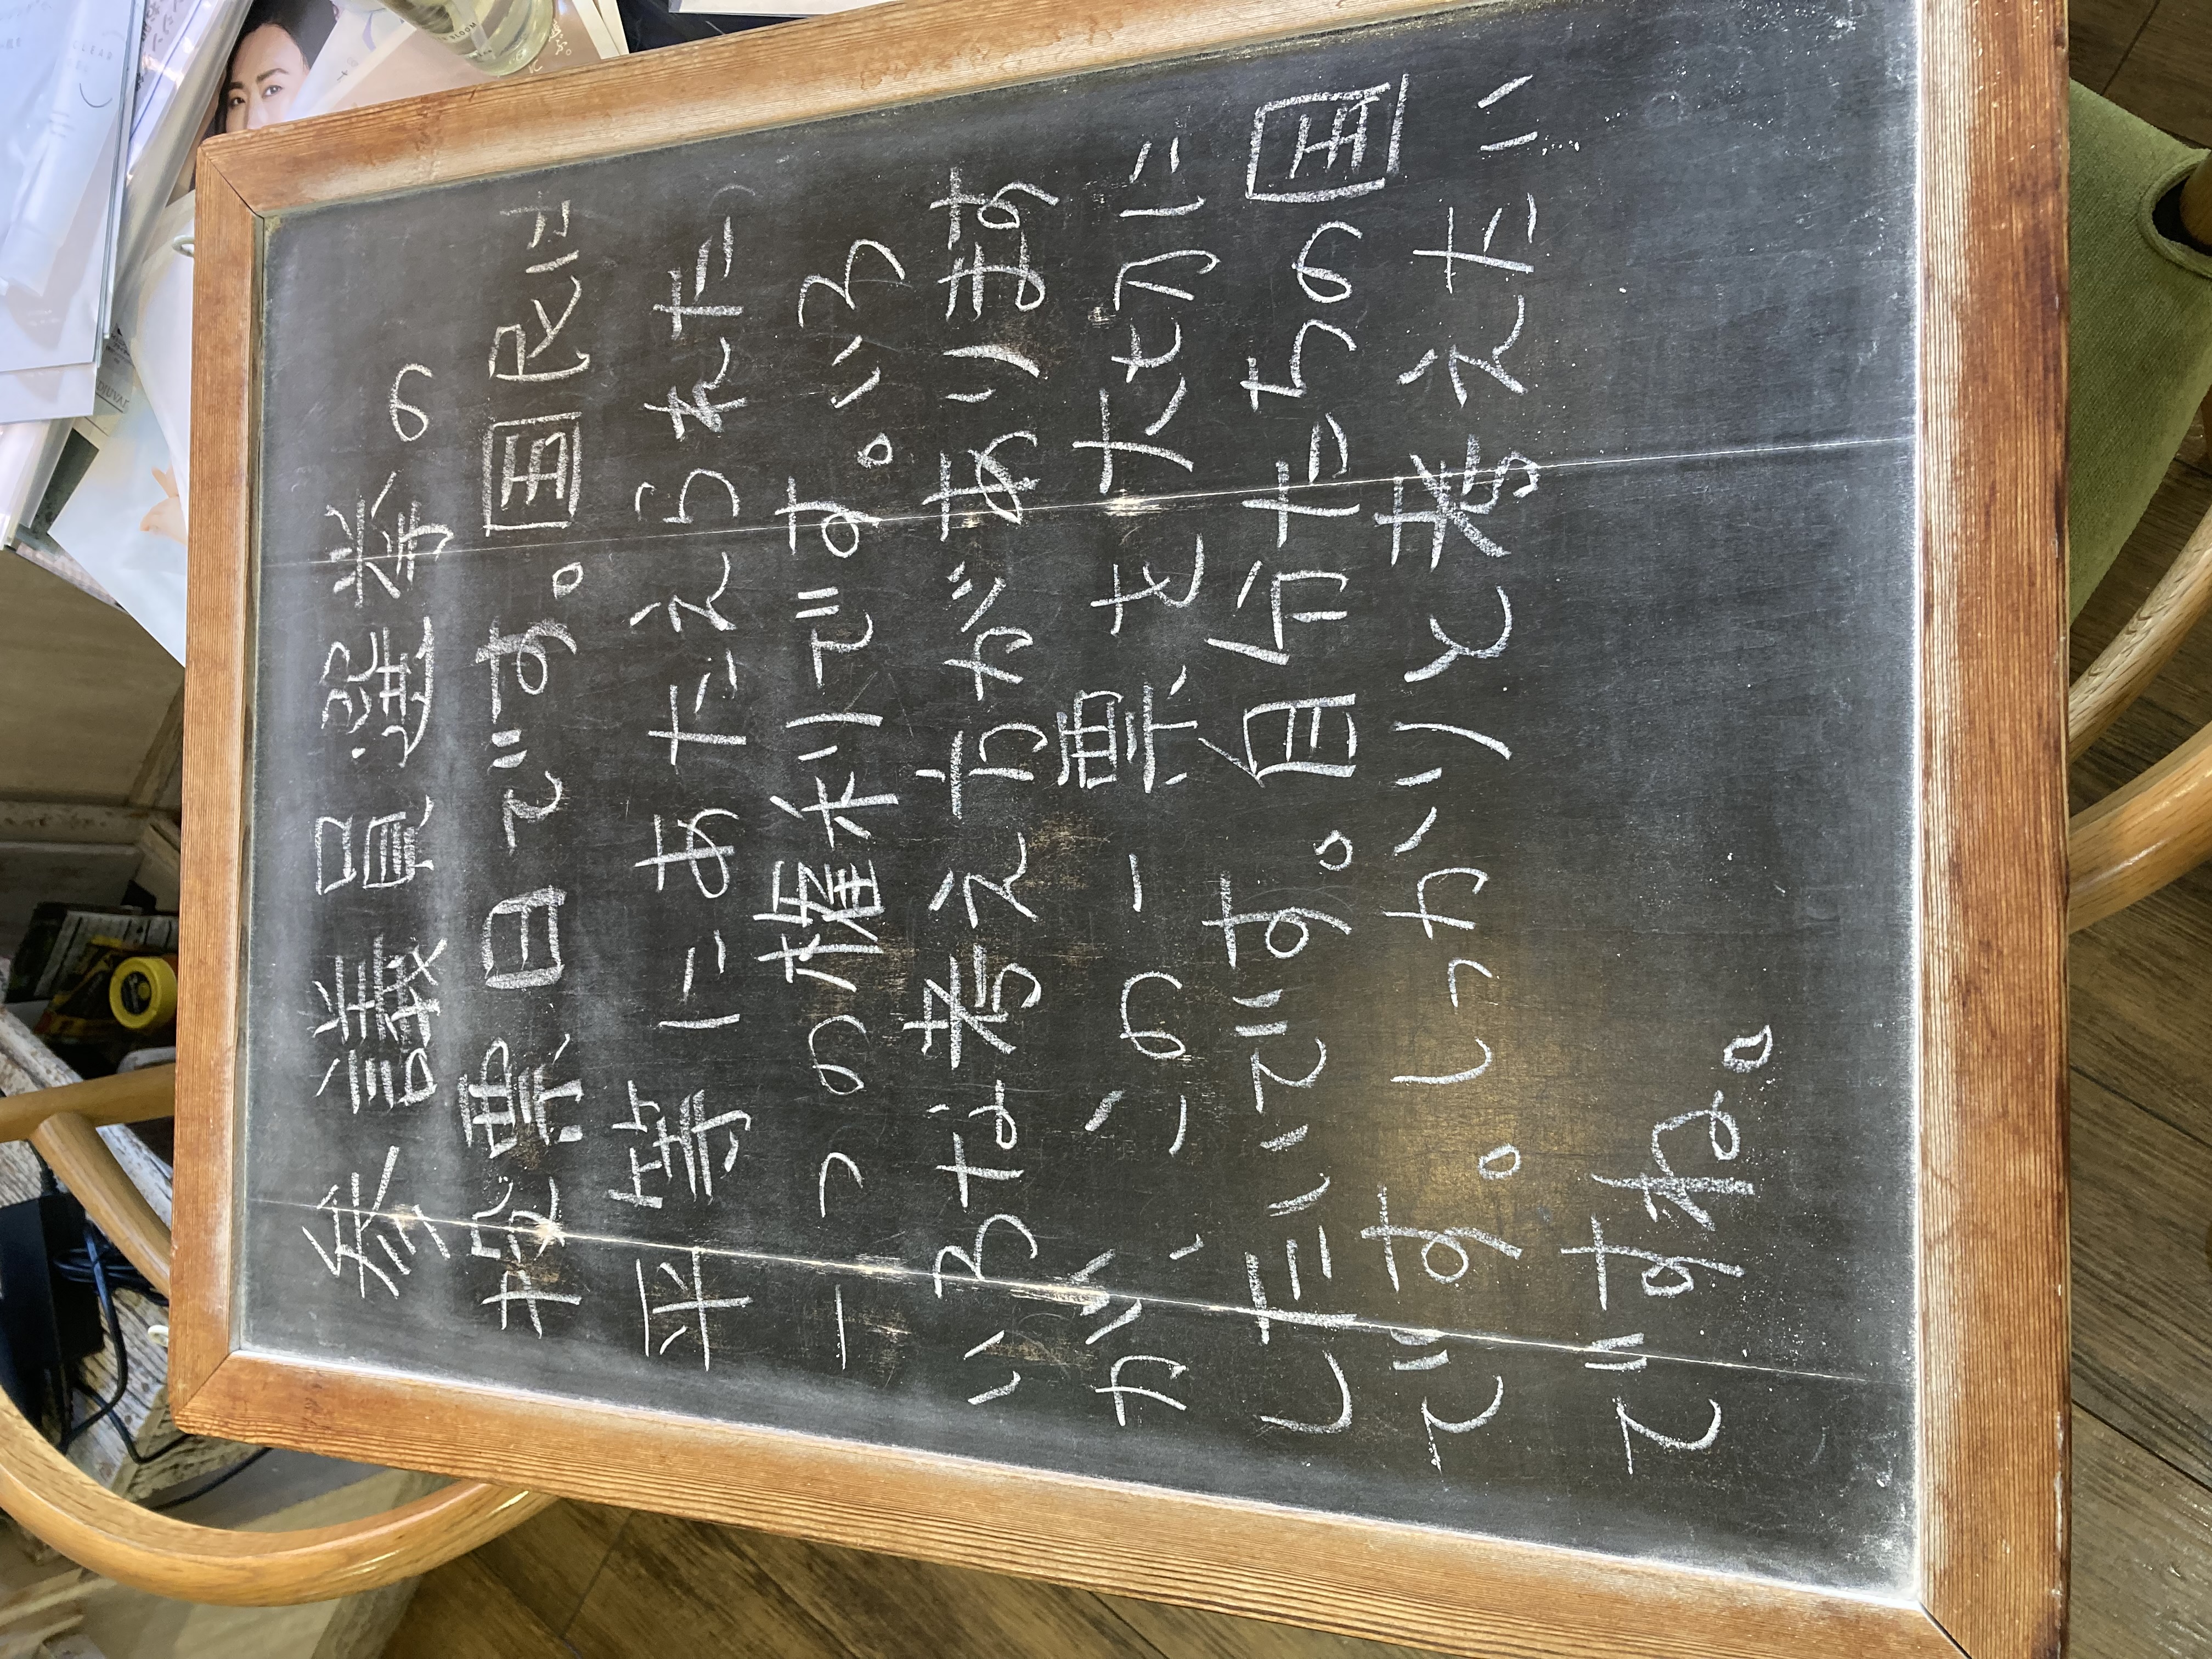 参議員選挙の
投票日です。国民に
平等にあたえられた
一つの権利です。いろ
いろな考え方があります
が、この一票を大切に
したいです。自分たちの国
です。しっかりと考えたい
ですね。